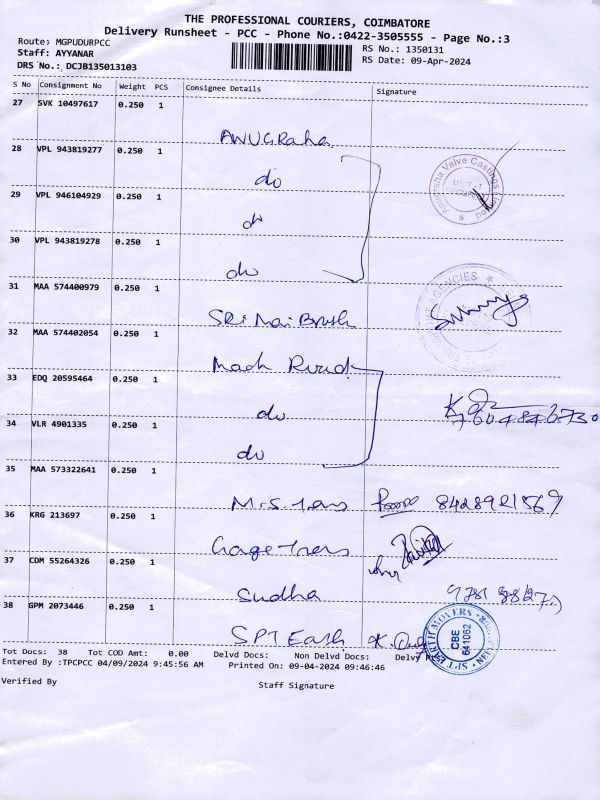 THE PROFESSIONAL COURIERS, COIMBATORE
Delivery Runsheet - PCC - Phone No.:0422-3505555 - Page No.:3
Route: MGPUDURPCC
RS No.: 1350131
Staff: AYYANAR
RS Date: 09-Apr-2024
DRS No.: DCJB135013103
S No Consignment No Weight PCS Consignee Details Signature
27 SVK 10497617 0.250 1
ANUGRaha
28 VPL 943819277 0.250 1
do
Anugraha Valve Castings Limited
UNIT-1
29 VPL 946104929 0.250 1
do
30 VPL 943819278 0.250 1
do
31 MAA 574400979 0.250 1
AGENCIES
SRi Mai Brush
32 MAA 574402054 0.250 1
33 EDQ 20595464 0.250 1
do
34 VLR 4901335 0.250 1
do
35 MAA 573322641 0.250 1
M.S.
36 KRG 213697 0.250 1
37 CDM 55264326 0.250 1
Sudha
38 GPM 2073446 0.250 1
SPT Earth
SPT EARTH MOVERS
CBE
641062
Tot Docs: 38 Tot COD Amt: 0.00 Delvd Docs: Non Delvd Docs: Delvy
Entered By :TPCPCC 04/09/2024 9:45:56 AM Printed On: 09-04-2024 09:46:46
Verified By Staff Signature